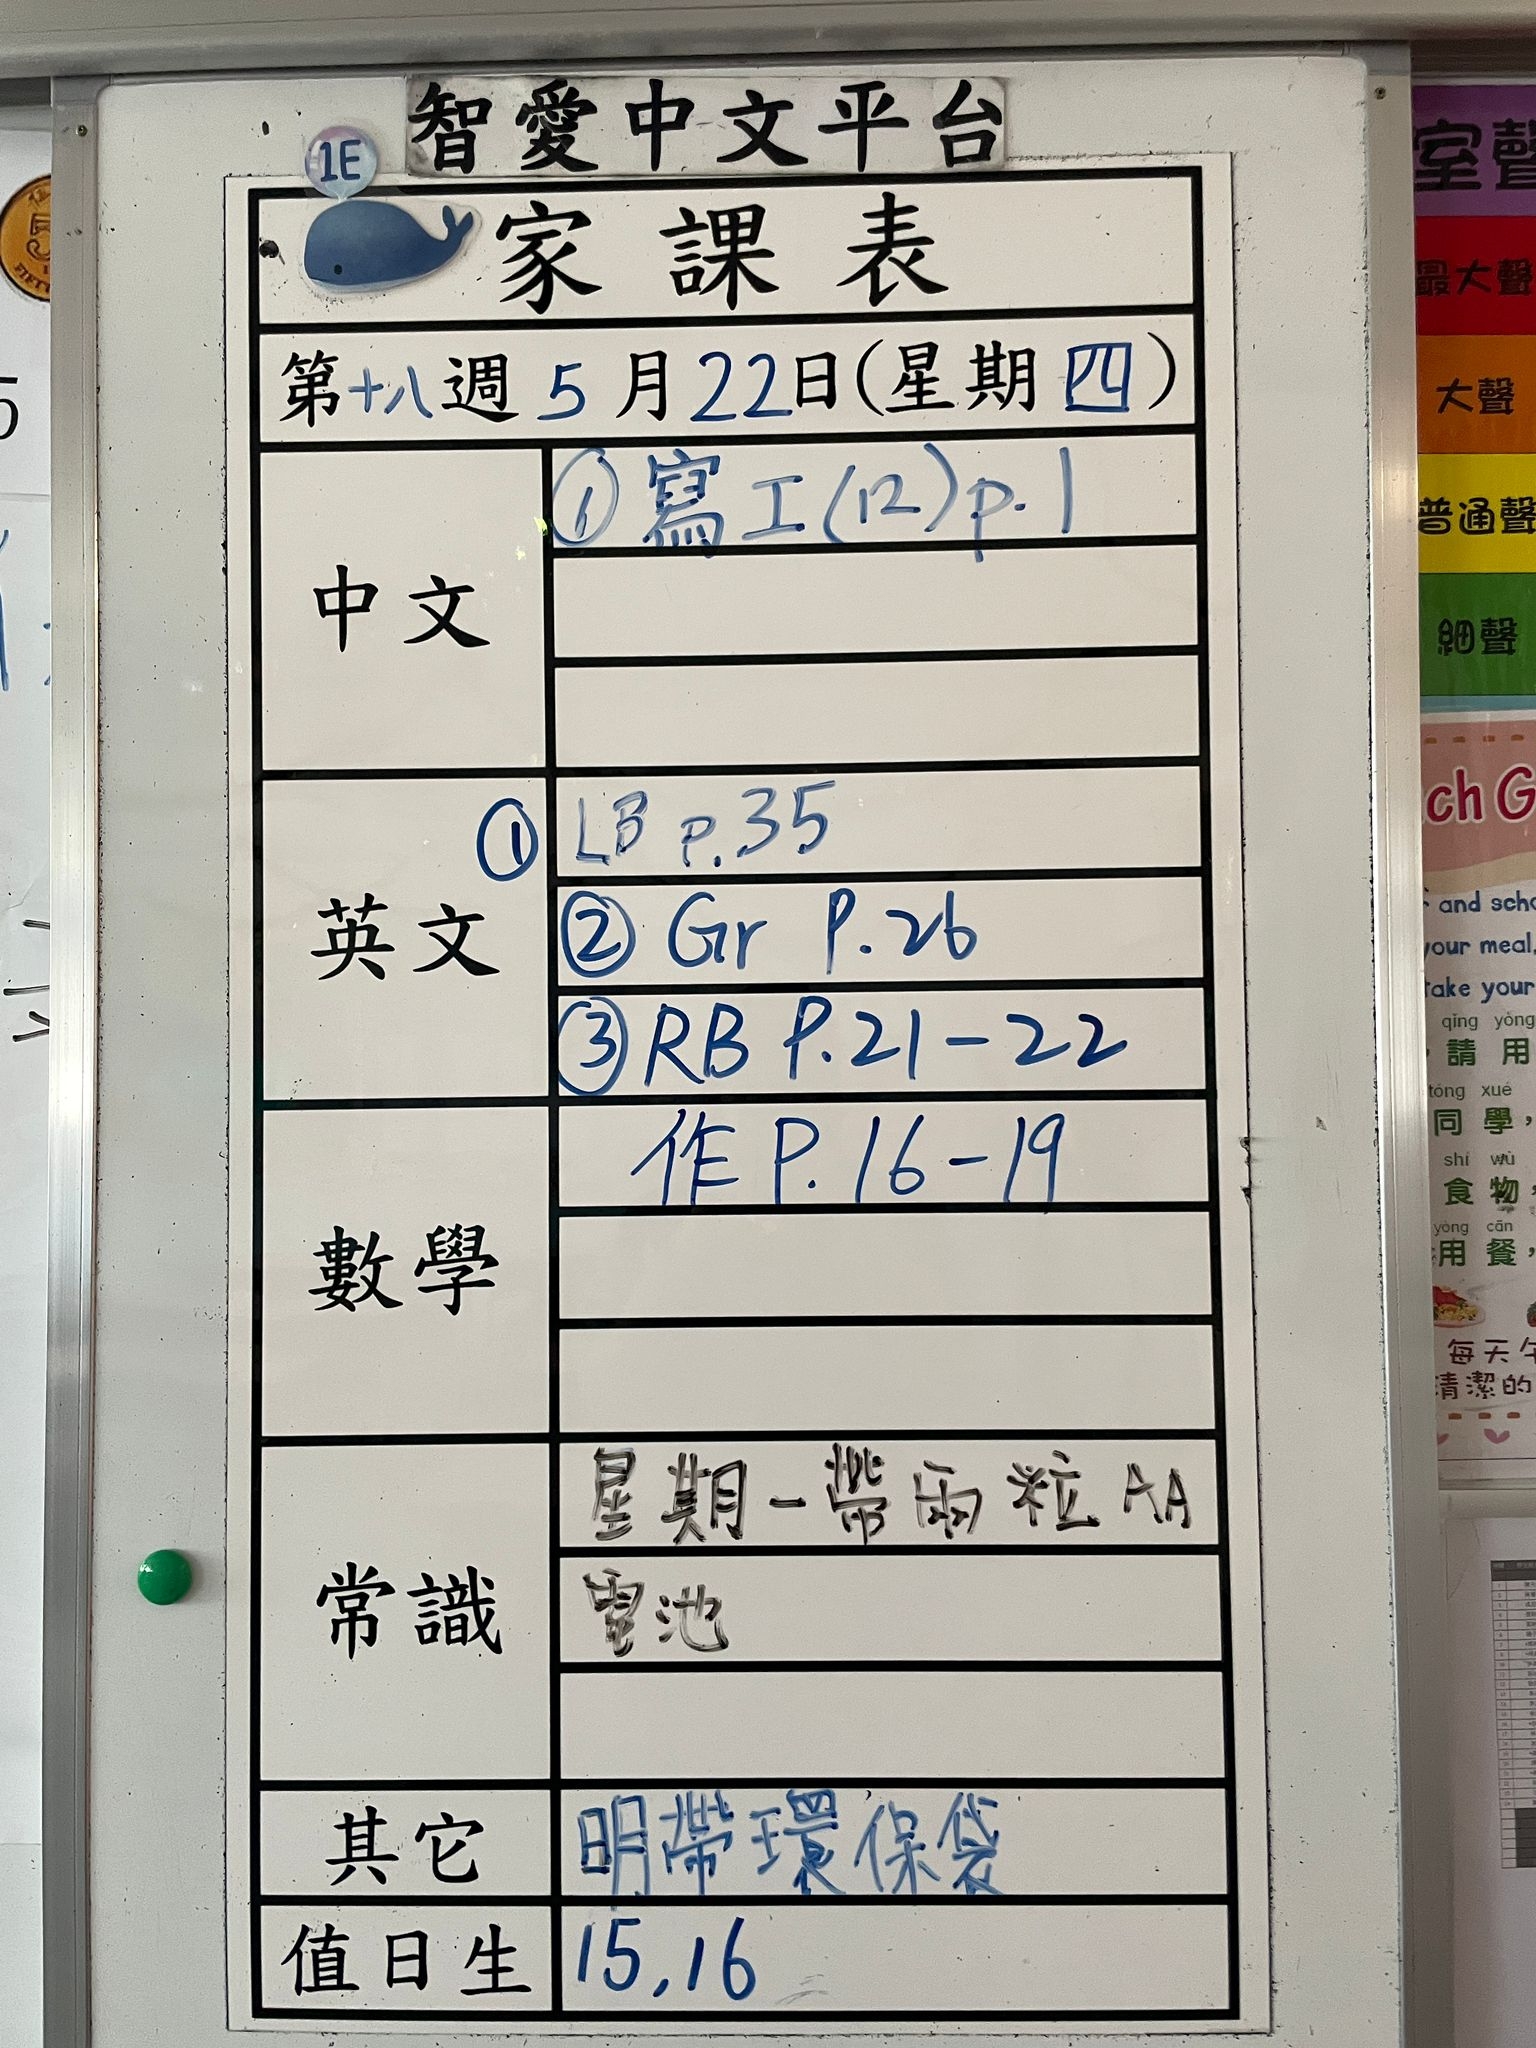 智愛中文平台
1E
家課表
第十八週5月22日(星期四)
中文
①寫工(12)p.1
英文
① LB p.35
② Gr P.26
③ RB P.21-22
數學
作 P.16-19
常識
星期一帶兩粒AA
電池
其它
明帶環保袋
值日生
15,16
室聲
最大聲
大聲
普通聲
細聲
ch G
and scho
your meal,
take your
qǐng yòng
請用
tóng xué
同學，
shí wù
食物
yòng cān
用餐，
每天午
清潔的